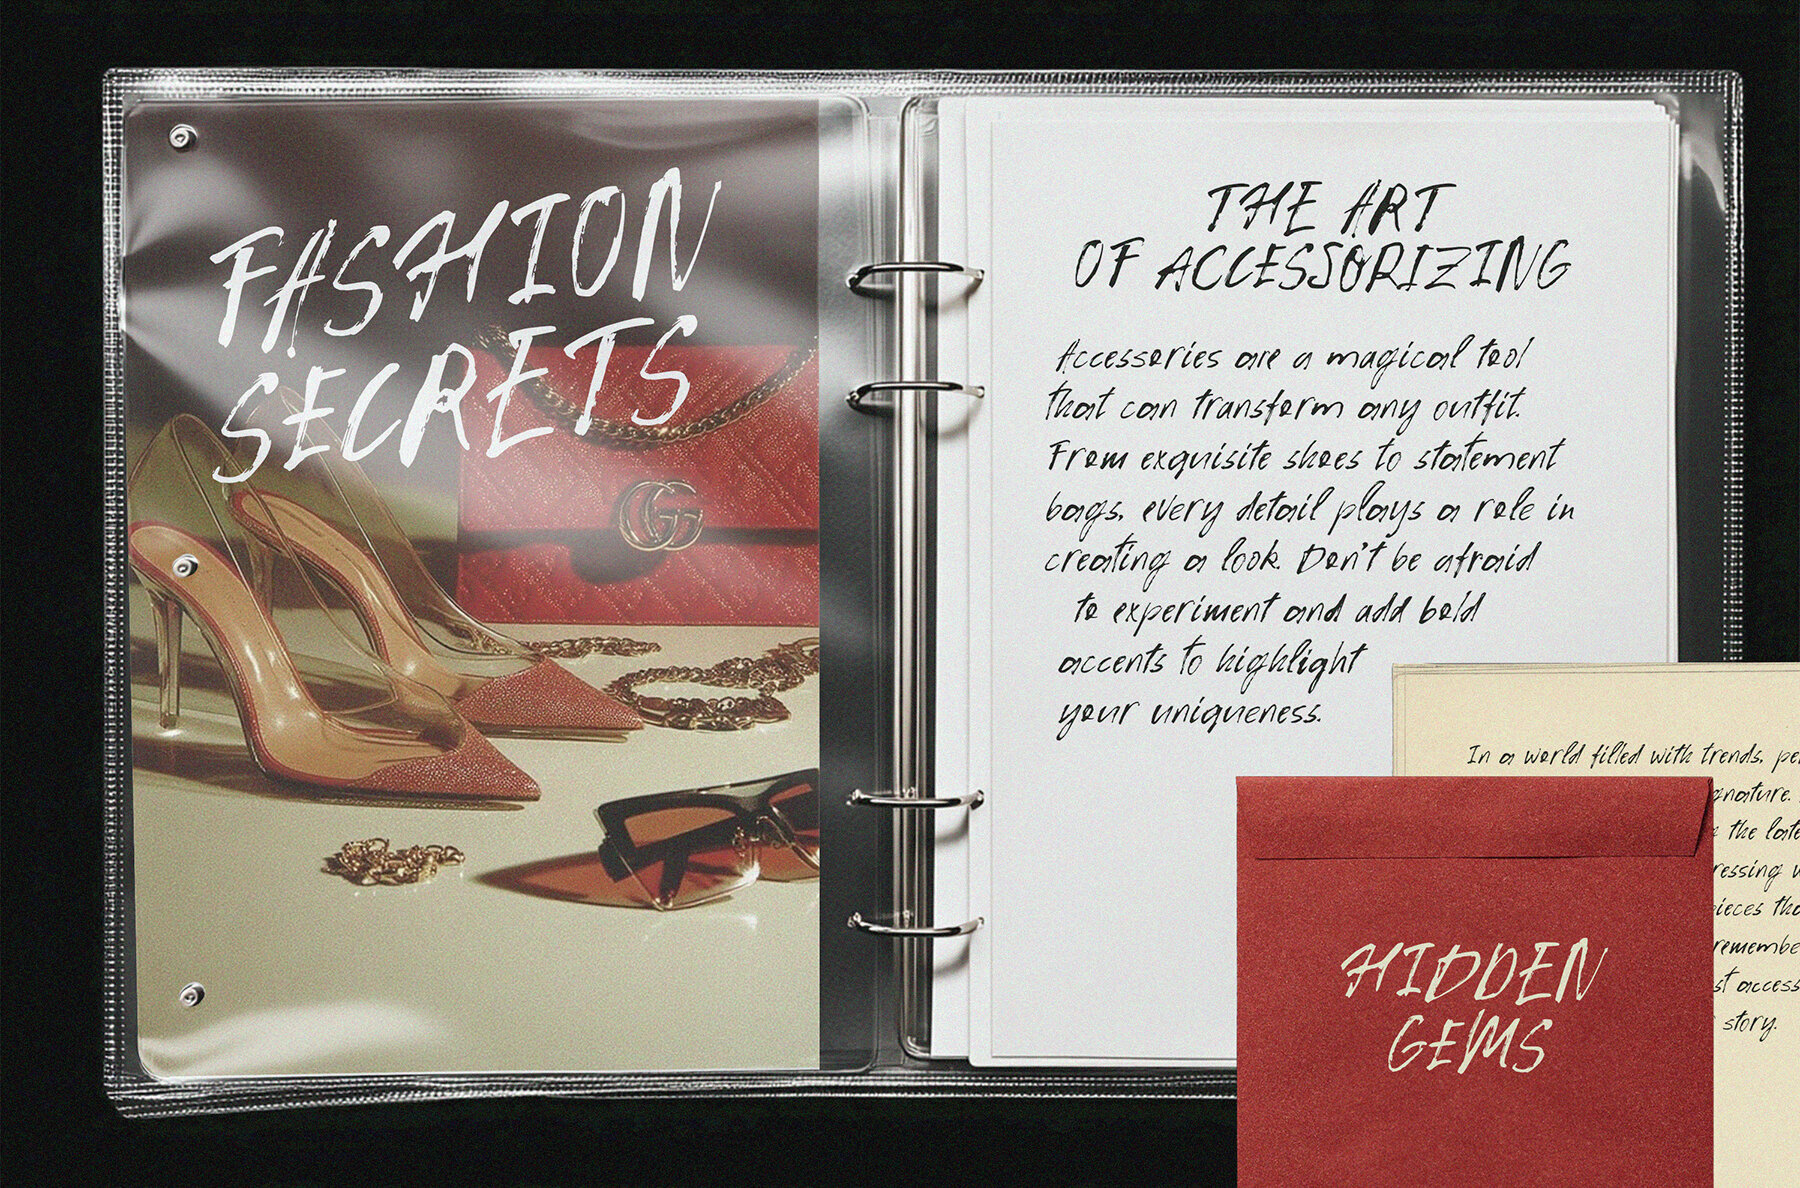 FASHION
SECRETS
THE ART
OF ACCESSORIZING
Accessories are a magical tool
that can transform any outfit.
From exquisite shoes to statement
bags, every detail plays a role in
creating a look. Don't be afraid
to experiment and add bold
accents to highlight
your uniqueness.
In a world filled with trends,
the
story.
HIDDEN
GEMS